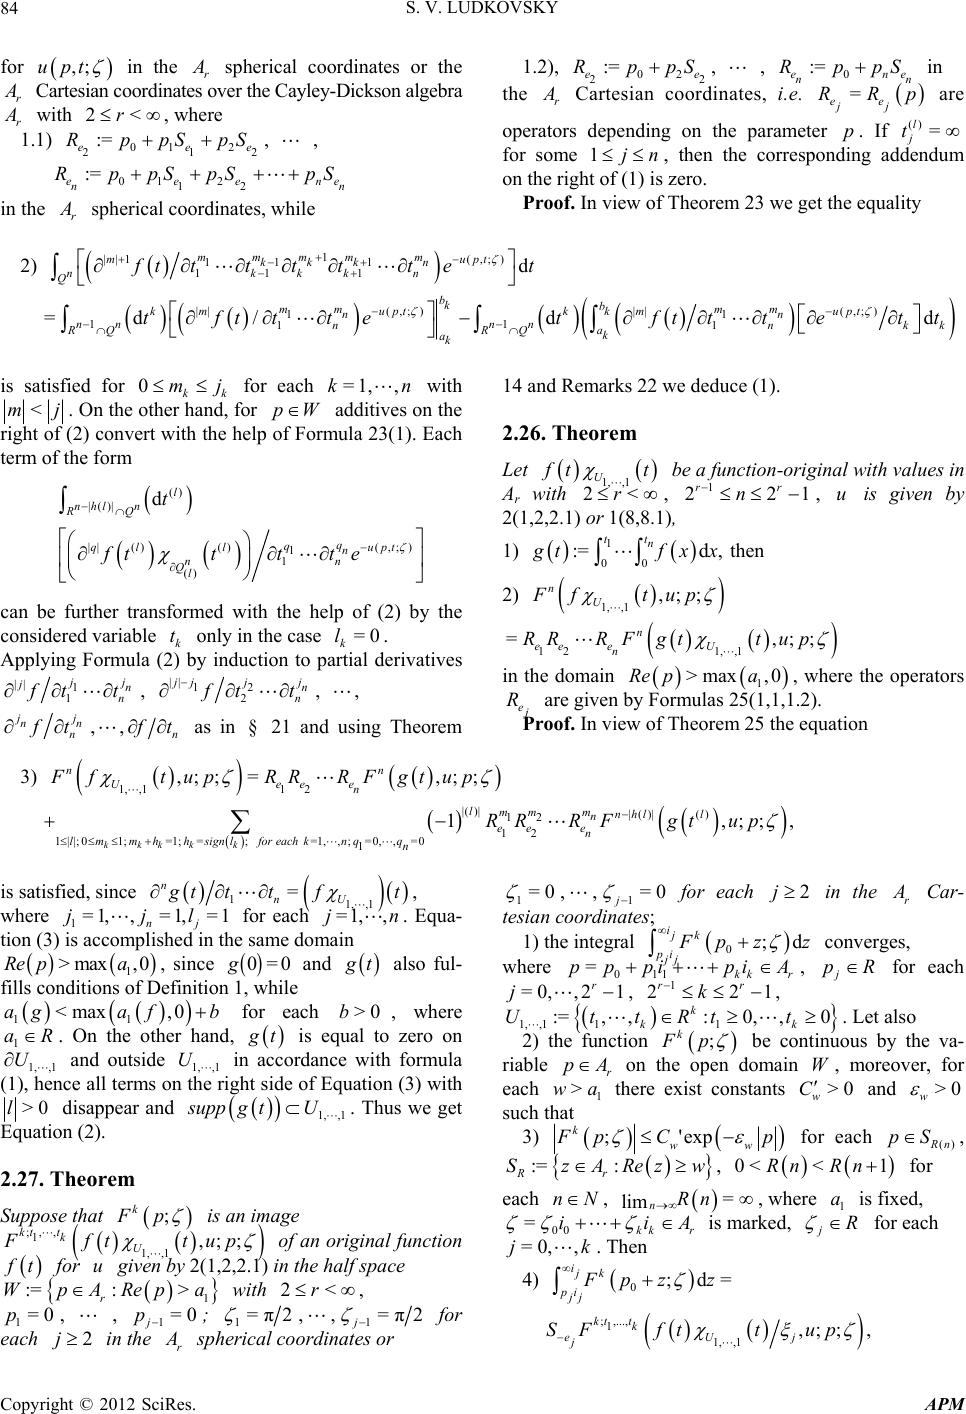 84
S. V. LUDKOVSKY
for u(p,t;ζ) in the A_r spherical coordinates or the
A_r Cartesian coordinates over the Cayley-Dickson algebra
A_r with 2 ≤ r < ∞, where
1.1) R_{e_2} := p_0 + p_1 S_{e_1} + p_2 S_{e_2}, ⋯ ,
R_{e_n} := p_0 + p_1 S_{e_1} + p_2 S_{e_2} + ⋯ + p_n S_{e_n}
in the A_r spherical coordinates, while
1.2), R_{e_2} := p_0 + p_2 S_{e_2}, ⋯ , R_{e_n} := p_0 + p_n S_{e_n} in
the A_r Cartesian coordinates, i.e. R_{e_j} = R_{e_j}(p) are
operators depending on the parameter p. If t_j^{(l)} = ∞
for some 1 ≤ j ≤ n, then the corresponding addendum
on the right of (1) is zero.
Proof. In view of Theorem 23 we get the equality
2) ∫_{Q^n} [(∂^{|m|+1} f(t)/∂t_1^{m_1} ⋯ ∂t_{k-1}^{m_{k-1}} ∂t_k^{m_k+1} ∂t_{k+1}^{m_{k+1}} ⋯ ∂t_n^{m_n}) e^{-u(p,t;ζ)}] dt
= ∫_{R^{n-1}∩Q^n} dt^k [(∂^{|m|} f(t)/∂t_1^{m_1} ⋯ ∂t_n^{m_n}) e^{-u(p,t;ζ)}]_{a_k}^{b_k} − ∫_{R^{n-1}∩Q^n} dt^k ∫_{a_k}^{b_k} (∂^{|m|} f(t)/∂t_1^{m_1} ⋯ ∂t_n^{m_n}) [∂e^{-u(p,t;ζ)}/∂t_k] dt_k
is satisfied for 0 ≤ m_k ≤ j_k for each k = 1, ⋯, n with
|m| < |j|. On the other hand, for p ∈ W additives on the
right of (2) convert with the help of Formula 23(1). Each
term of the form
∫_{R^{n-|h(l)|}∩Q^n} dt^{(l)}
[(∂^{|q|} f(t^{(l)}) χ_{∂Q^n_{(l)}}(t^{(l)})/∂t_1^{q_1} ⋯ ∂t_n^{q_n}) e^{-u(p,t;ζ)}]
can be further transformed with the help of (2) by the
considered variable t_k only in the case l_k = 0.
Applying Formula (2) by induction to partial derivatives
∂^{|j|} f/∂t_1^{j_1} ⋯ ∂t_n^{j_n}, ∂^{|j|-j_1} f/∂t_2^{j_2} ⋯ ∂t_n^{j_n}, ⋯,
∂^{j_n} f/∂t_n^{j_n}, ⋯, ∂f/∂t_n as in § 21 and using Theorem
14 and Remarks 22 we deduce (1).
2.26. Theorem
Let f(t)χ_{U_{1,⋯,1}}(t) be a function-original with values in
A_r with 2 ≤ r < ∞, 2^{r-1} ≤ n ≤ 2^r − 1, u is given by
2(1,2,2.1) or 1(8,8.1),
1) g(t) := ∫_0^{t_1} ⋯ ∫_0^{t_n} f(x)dx, then
2) F^n(fχ_{U_{1,⋯,1}}(t),u;p;ζ)
= R_{e_1} R_{e_2} ⋯ R_{e_n} F^n(g(t)χ_{U_{1,⋯,1}}(t),u;p;ζ)
in the domain Re(p) > max(a_1,0), where the operators
R_{e_j} are given by Formulas 25(1,1,1.2).
Proof. In view of Theorem 25 the equation
3) F^n(fχ_{U_{1,⋯,1}}(t),u;p;ζ) = R_{e_1} R_{e_2} ⋯ R_{e_n} F^n(g(t),u;p;ζ)
+ ∑_{1≤|l|;0≤m_k≤1;m_k+h_k=1;h_k=sign(l_k); for each k=1,⋯,n;q_1=0,⋯,q_n=0} (−1)^{|(l)|} R_{e_1}^{m_1} R_{e_2}^{m_2} ⋯ R_{e_n}^{m_n} F^{n-|h(l)|}(g(t^{(l)}),u;p;ζ),
is satisfied, since ∂^n g(t)/∂t_1 ⋯ ∂t_n = (fχ_{U_{1,⋯,1}})(t),
where j_1 = 1, ⋯, j_n = 1, l_j = 1 for each j = 1, ⋯, n. Equa-
tion (3) is accomplished in the same domain
Re(p) > max(a_1,0), since g(0) = 0 and g(t) also ful-
fills conditions of Definition 1, while
a_1(g) < max(a_1(f),0) + b for each b > 0, where
a_1 ∈ R. On the other hand, g(t) is equal to zero on
∂U_{1,⋯,1} and outside U_{1,⋯,1} in accordance with formula
(1), hence all terms on the right side of Equation (3) with
|l| > 0 disappear and supp(g(t)) ⊂ U_{1,⋯,1}. Thus we get
Equation (2).
2.27. Theorem
Suppose that F^k(p;ζ) is an image
F^{k;t_1,⋯,t_k}(f(t)χ_{U_{1,⋯,1}}(t),u;p;ζ) of an original function
f(t) for u given by 2(1,2,2.1) in the half space
W := {p ∈ A_r : Re(p) > a_1} with 2 ≤ r < ∞,
p_1 = 0, ⋯, p_{j-1} = 0; ζ_1 = π/2, ⋯, ζ_{j-1} = π/2 for
each j ≥ 2 in the A_r spherical coordinates or
ζ_1 = 0, ⋯, ζ_{j-1} = 0 for each j ≥ 2 in the A_r Car-
tesian coordinates;
1) the integral ∫_{p_j i_j}^{∞i_j} F^k(p_0 + z;ζ)dz converges,
where p = p_0 + p_1 i_1 + ⋯ + p_k i_k ∈ A_r, p_j ∈ R for each
j = 0, ⋯, 2^r − 1, 2^{r-1} ≤ k ≤ 2^r − 1,
U_{1,⋯,1} := {(t_1, ⋯, t_k) ∈ R^k : t_1 ≥ 0, ⋯, t_k ≥ 0}. Let also
2) the function F^k(p;ζ) be continuous by the va-
riable p ∈ A_r on the open domain W, moreover, for
each w > a_1 there exist constants C_w' > 0 and ε_w > 0
such that
3) |F^k(p;ζ)| ≤ C_w' exp(−ε_w |p|) for each p ∈ S_{R(n)},
S_R := {z ∈ A_r : Re(z) ≥ w}, 0 < R(n) < R(n+1) for
each n ∈ N, lim_{n→∞} R(n) = ∞, where a_1 is fixed,
ζ = ζ_0 i_0 + ⋯ + ζ_k i_k ∈ A_r is marked, ζ_j ∈ R for each
j = 0, ⋯, k. Then
4) ∫_{p_j i_j}^{∞i_j} F^k(p_0 + z;ζ)dz =
S_{-e_j} F^{k;t_1,...,t_k}(f(t)χ_{U_{1,⋯,1}}(t)/ξ_j,u;p;ζ),
Copyright © 2012 SciRes.
APM